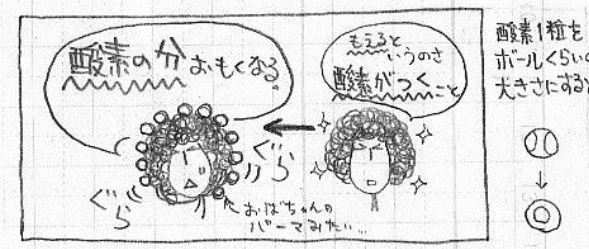 酸素の分おもくなる。
もえると
いうのさ
酸素がつくこと
ぐら
ぐら
おばちゃんの
パーマみたい…
酸素1粒を
ボールくらいの
大きさにすると